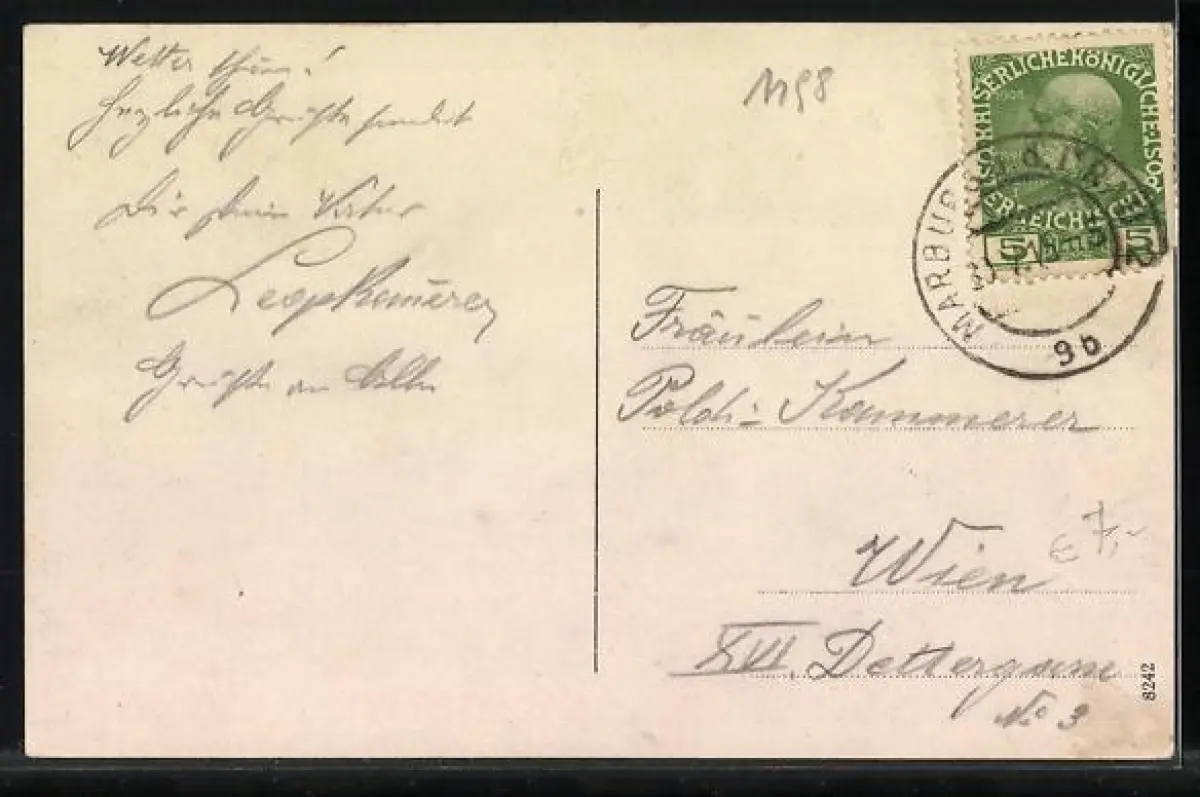 Wetter schön!
Herzliche Grüße sendet
Dir dein Vater
Leop Kammerer
Grüße an Alle
1198
KAISERLICHE KÖNIGLICHE
ÖSTERREICHISCHE
POST
1908
5 5
MARBURG a. DRAU
9b
Fräulein
Poldi Kammerer
Wien
XVI. Dettergasse
No 3
€ 7,-
8242